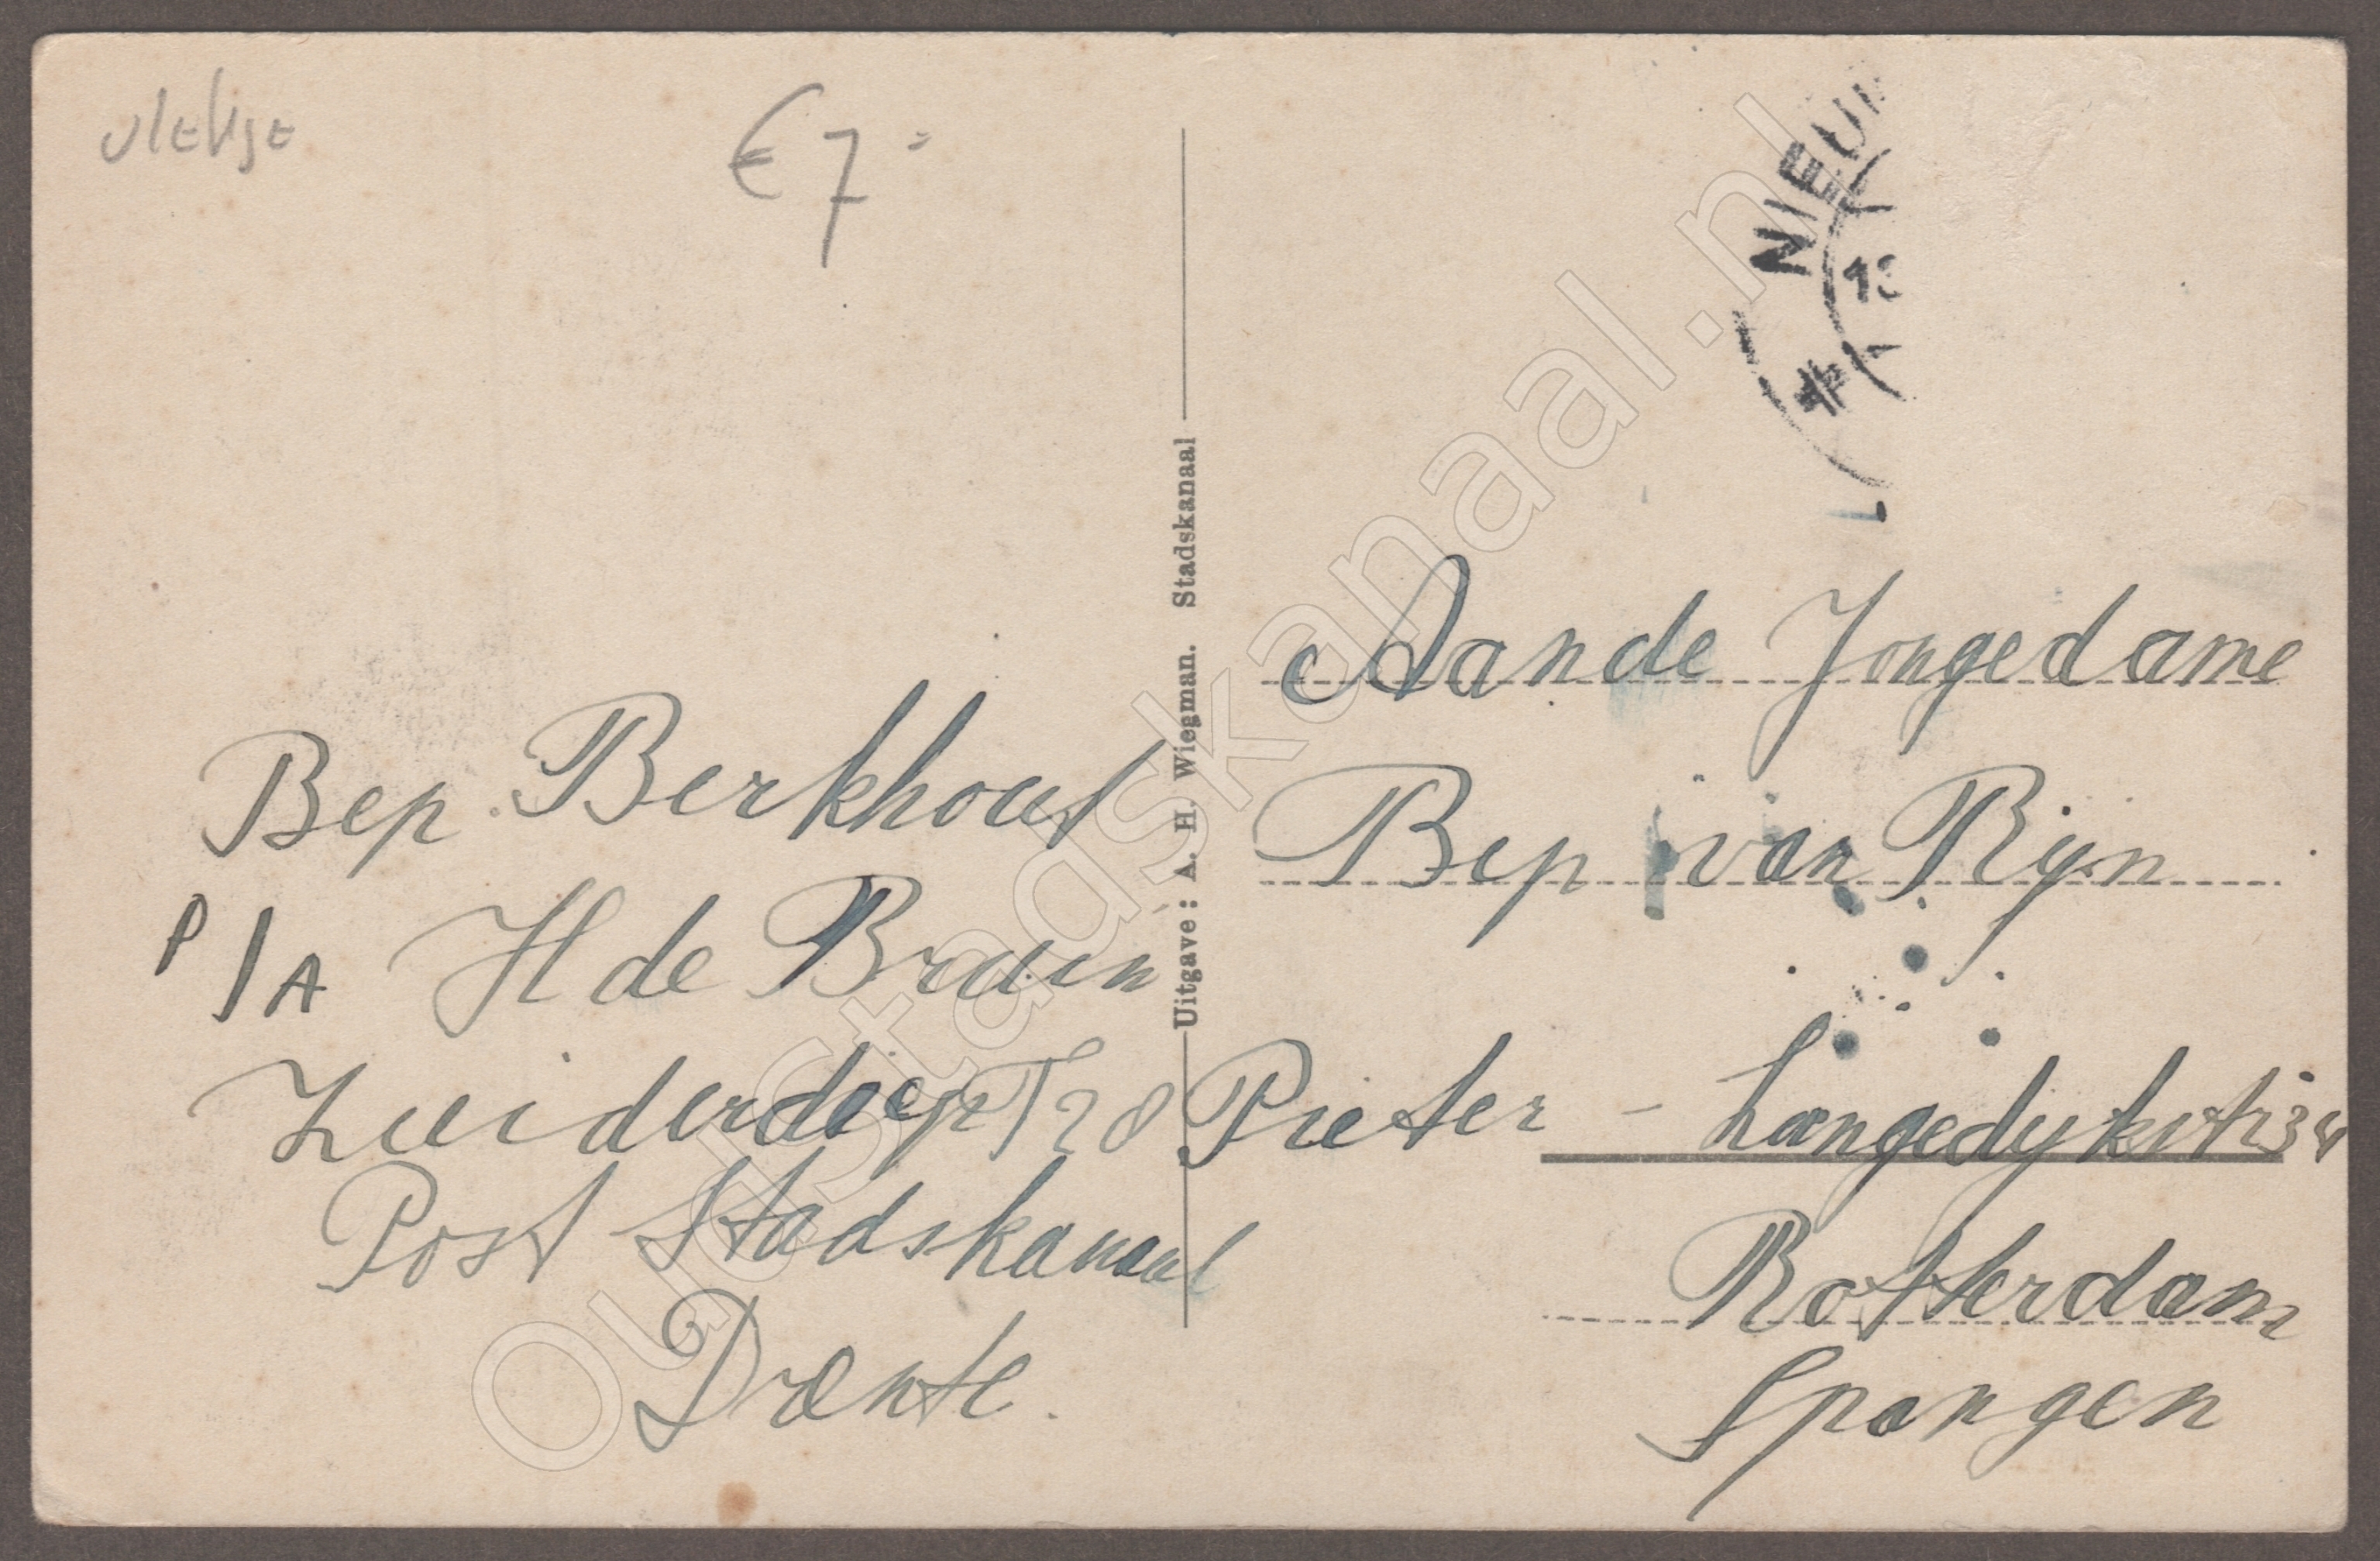 vlekje
€ 7 =
Bep Berkhout
P/A H de Bruin
Zuiderdiep T28
Post Stadskanaal
Drente.
Uitgave: A. H. Wiegman. Stadskanaal
NIEUW
13
Aan de Jongedame
Bep van Rijn
Pieter - Langedykstr
Rotterdam
Spangen
Oudstadskanaal.nl